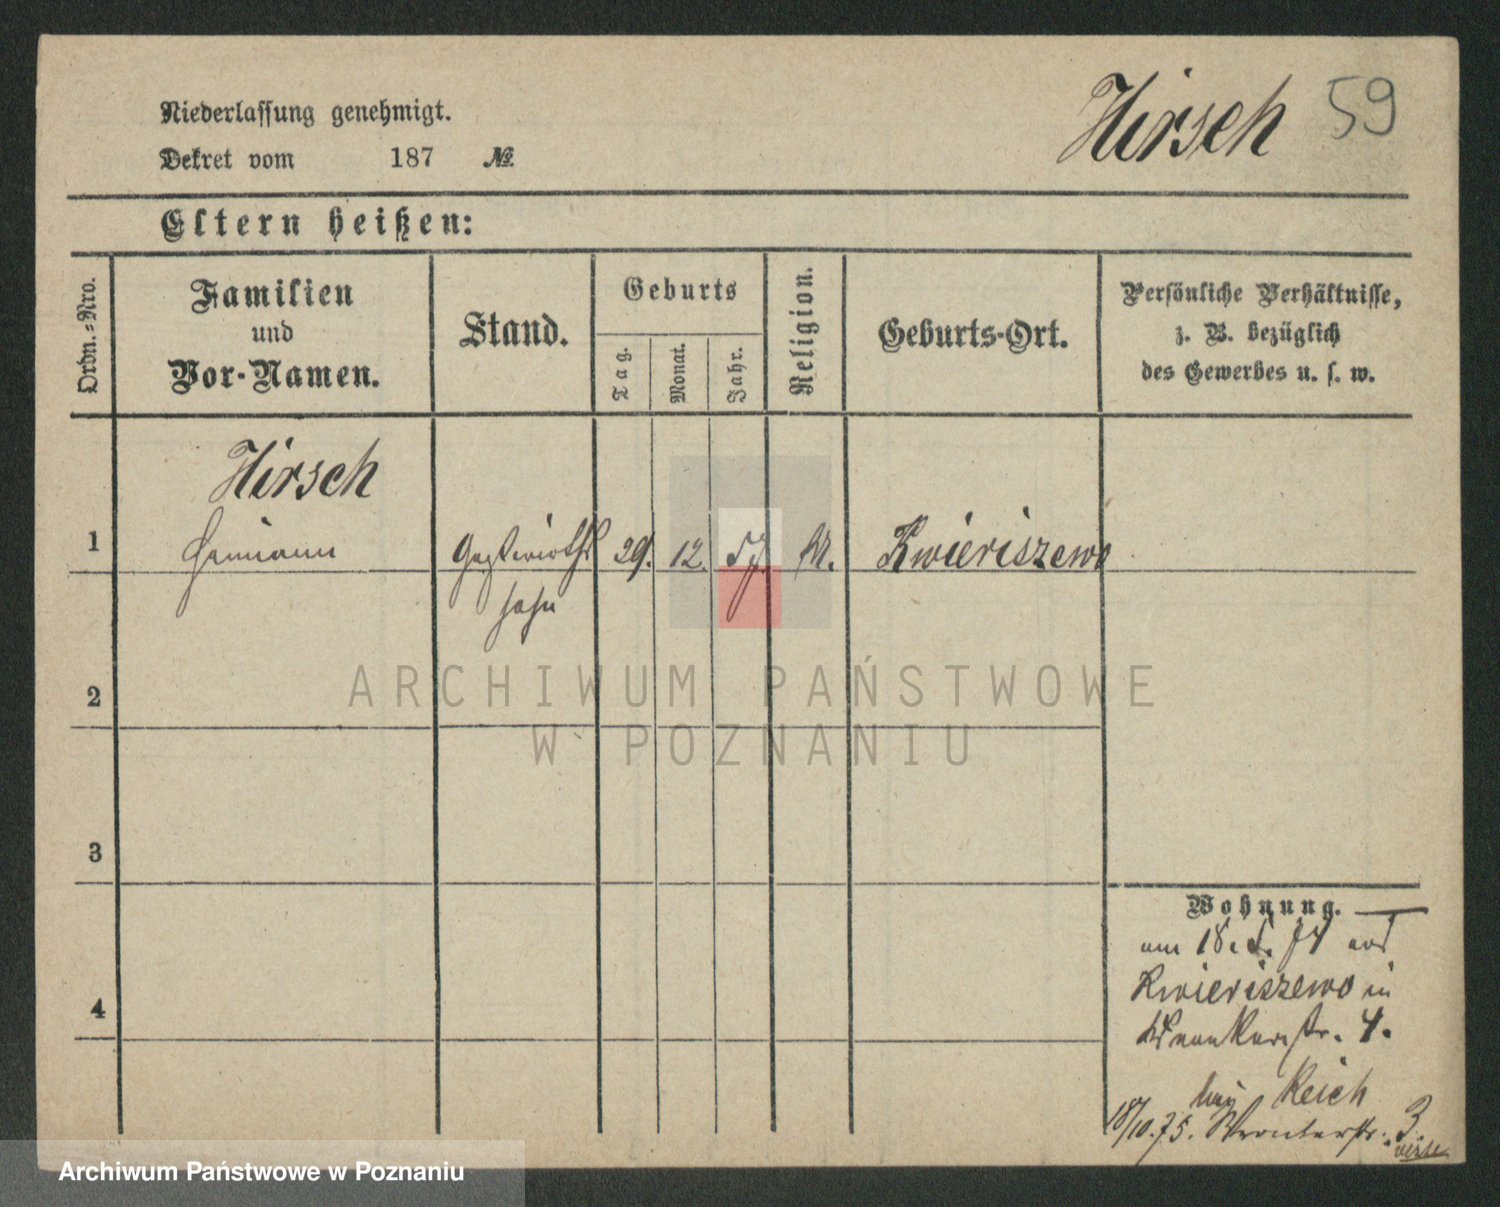 Niederlassung genehmigt.
Dekret vom 187 №
Hirsch 59
Eltern heißen:
Ordn.-Nro.
Familien
und
Vor-Namen.
Stand.
Geburts
Tag.
Monat.
Jahr.
Religion.
Geburts-Ort.
Persönliche Verhältnisse,
z. B. bezüglich
des Gewerbes u. s. w.
Hirsch
1 Hermann Gastwirths 29. 12. 57. M. Kwieciszewo
sohn
2
3
4
Wohnung.
am 18. 5. 74 aus
Kwieciszewo in
Wronkerstr. 4.
bei Reich
18/10.75. Wronkerstr. 3
ARCHIWUM PAŃSTWOWE
W POZNANIU
Archiwum Państwowe w Poznaniu